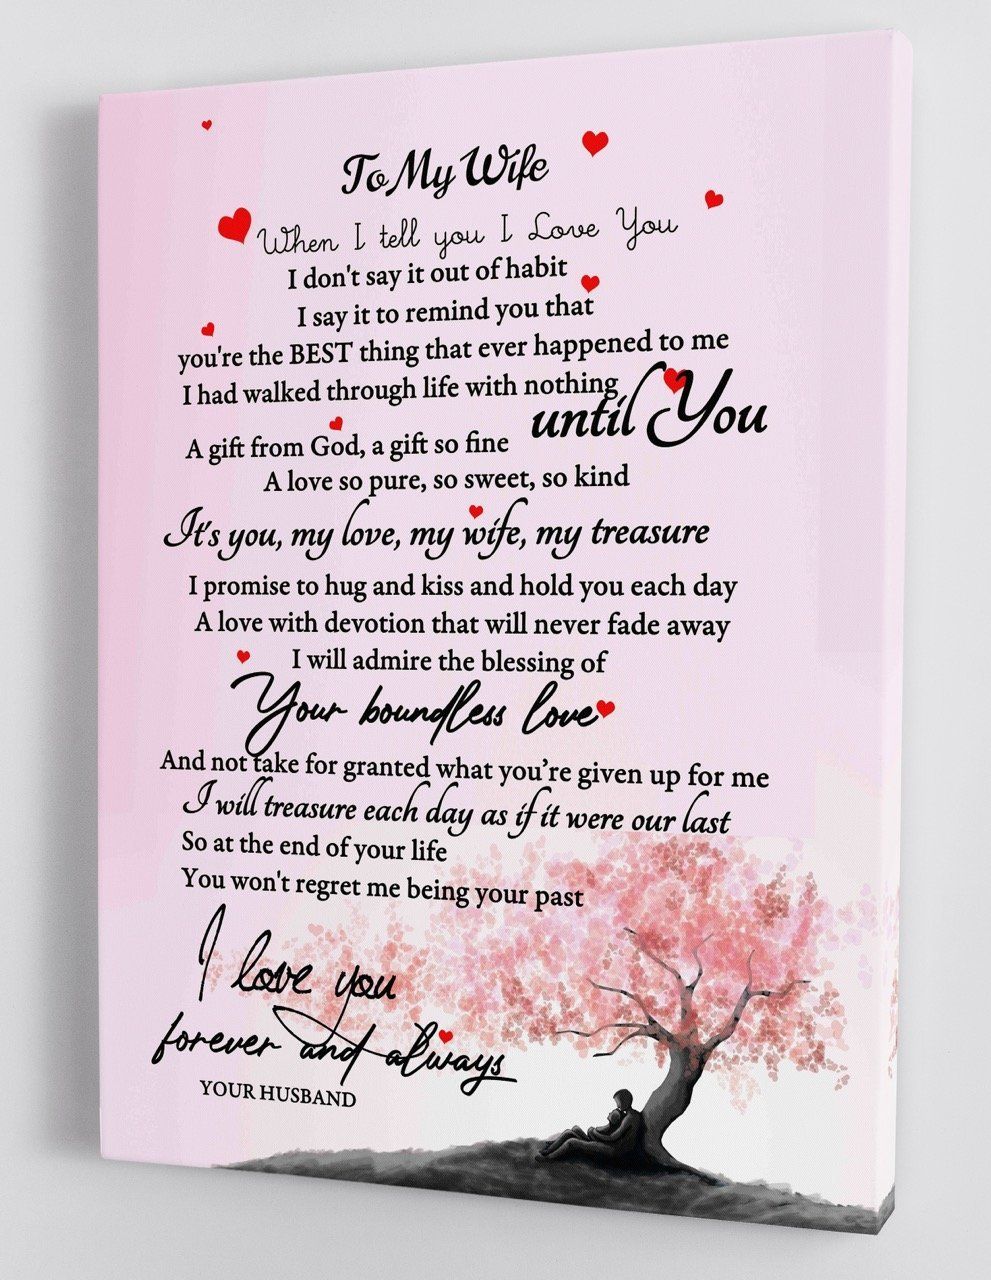 To My Wife
When I tell you I Love You
I don't say it out of habit
I say it to remind you that
you're the BEST thing that ever happened to me
I had walked through life with nothing
until You
A gift from God, a gift so fine
A love so pure, so sweet, so kind
It's you, my love, my wife, my treasure
I promise to hug and kiss and hold you each day
A love with devotion that will never fade away
I will admire the blessing of
Your boundless love
And not take for granted what you’re given up for me
I will treasure each day as if it were our last
So at the end of your life
You won't regret me being your past
I love you
forever and always
YOUR HUSBAND